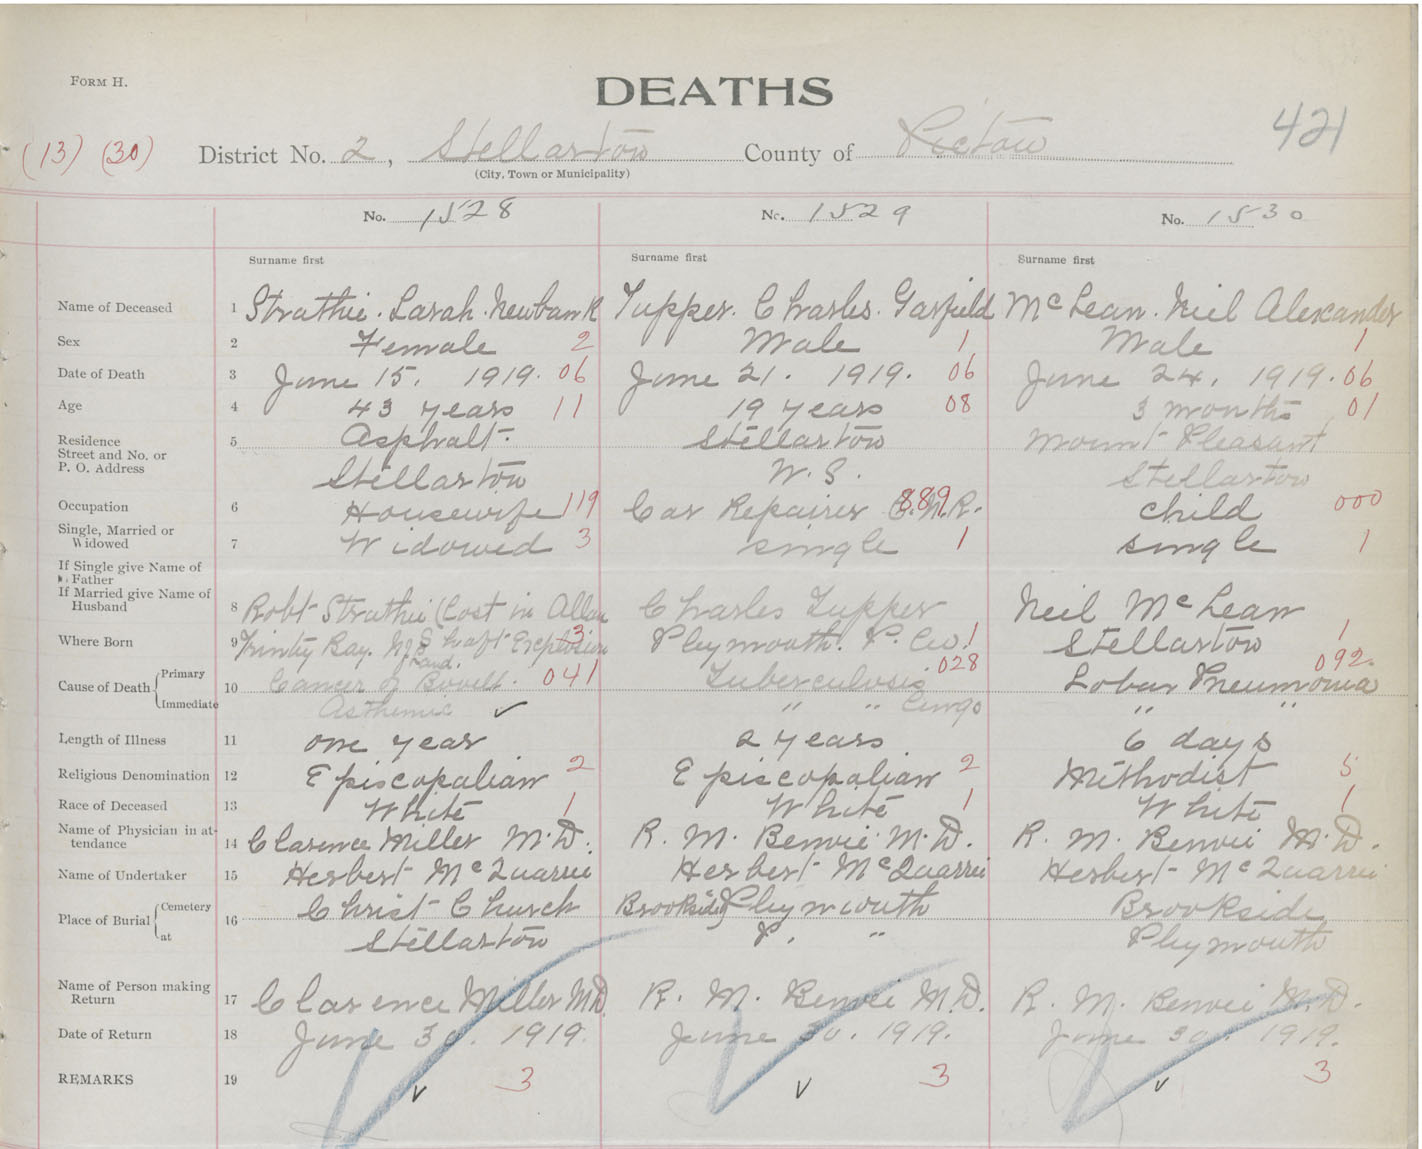 FORM H.
DEATHS
421
(13) (30) District No. 2, Stellarton County of Pictou
(City, Town or Municipality)
No. 1528 No. 1529 No. 1530
Surname first Surname first Surname first
Name of Deceased 1 Strathie. Sarah. Newbank Tupper. Charles. Garfield McLean. Niel Alexander
Sex 2 Female 2 Male 1 Male 1
Date of Death 3 June 15. 1919. 06 June 21. 1919. 06 June 24. 1919. 06
Age 4 43 years 11 19 years 08 3 months 01
Residence 5 Asphalt. Stellarton Mount Pleasant
Street and No. or
P. O. Address Stellarton W. S. Stellarton
Occupation 6 Housewife 119 Car Repairer C.N.R. 889 child 000
Single, Married or
Widowed 7 Widowed 3 single 1 single 1
If Single give Name of
Father
If Married give Name of
Husband 8 Robt Strathie (Lost in Allan Charles Tupper Neil McLean
Where Born 9 Trinity Bay. Nfd Shaft Explosion 3 Plymouth. P. Co. 1 Stellarton 1
Land.
Cause of Death Primary 10 Cancer of Bowell. 041 Tuberculosis 028 Lobar Pneumonia 092.
Immediate Asthemic ✓ " " Lungs " "
Length of Illness 11 one year 2 years 6 days
Religious Denomination 12 Episcopalian 2 Episcopalian 2 Methodist 5
Race of Deceased 13 White 1 White 1 White 1
Name of Physician in at-
tendance 14 Clarence Miller M.D. R. M. Benvie M.D. R. M. Benvie M.D.
Name of Undertaker 15 Herbert McQuarrie Herbert McQuarrie Herbert McQuarrie
Place of Burial Cemetery 16 Christ Church Brookside Plymouth Brookside
at Stellarton P. " Plymouth
Name of Person making
Return 17 Clarence Miller MD. R. M. Benvie M.D. R. M. Benvie M.D.
Date of Return 18 June 30. 1919. June 30. 1919. June 30. 1919.
REMARKS 19 ✓ 3 ✓ 3 ✓ 3